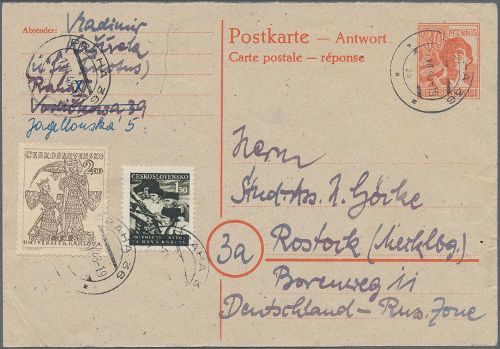 Absender:
Vladimír
Postkarte — Antwort
Carte postale — réponse
PFENNIG
PRAHA 86
Vodičkova 39
Jagellonská 5
ČESKOSLOVENSKO
2.00
UNIVERSITA KARLOVA
ČESKOSLOVENSKO
1.50
PRAHA 86
Herrn
Stud-Ass. J. Görke
3a
Rostock (Mecklbg)
Borenweg 11
Deutschland - Russ. Zone